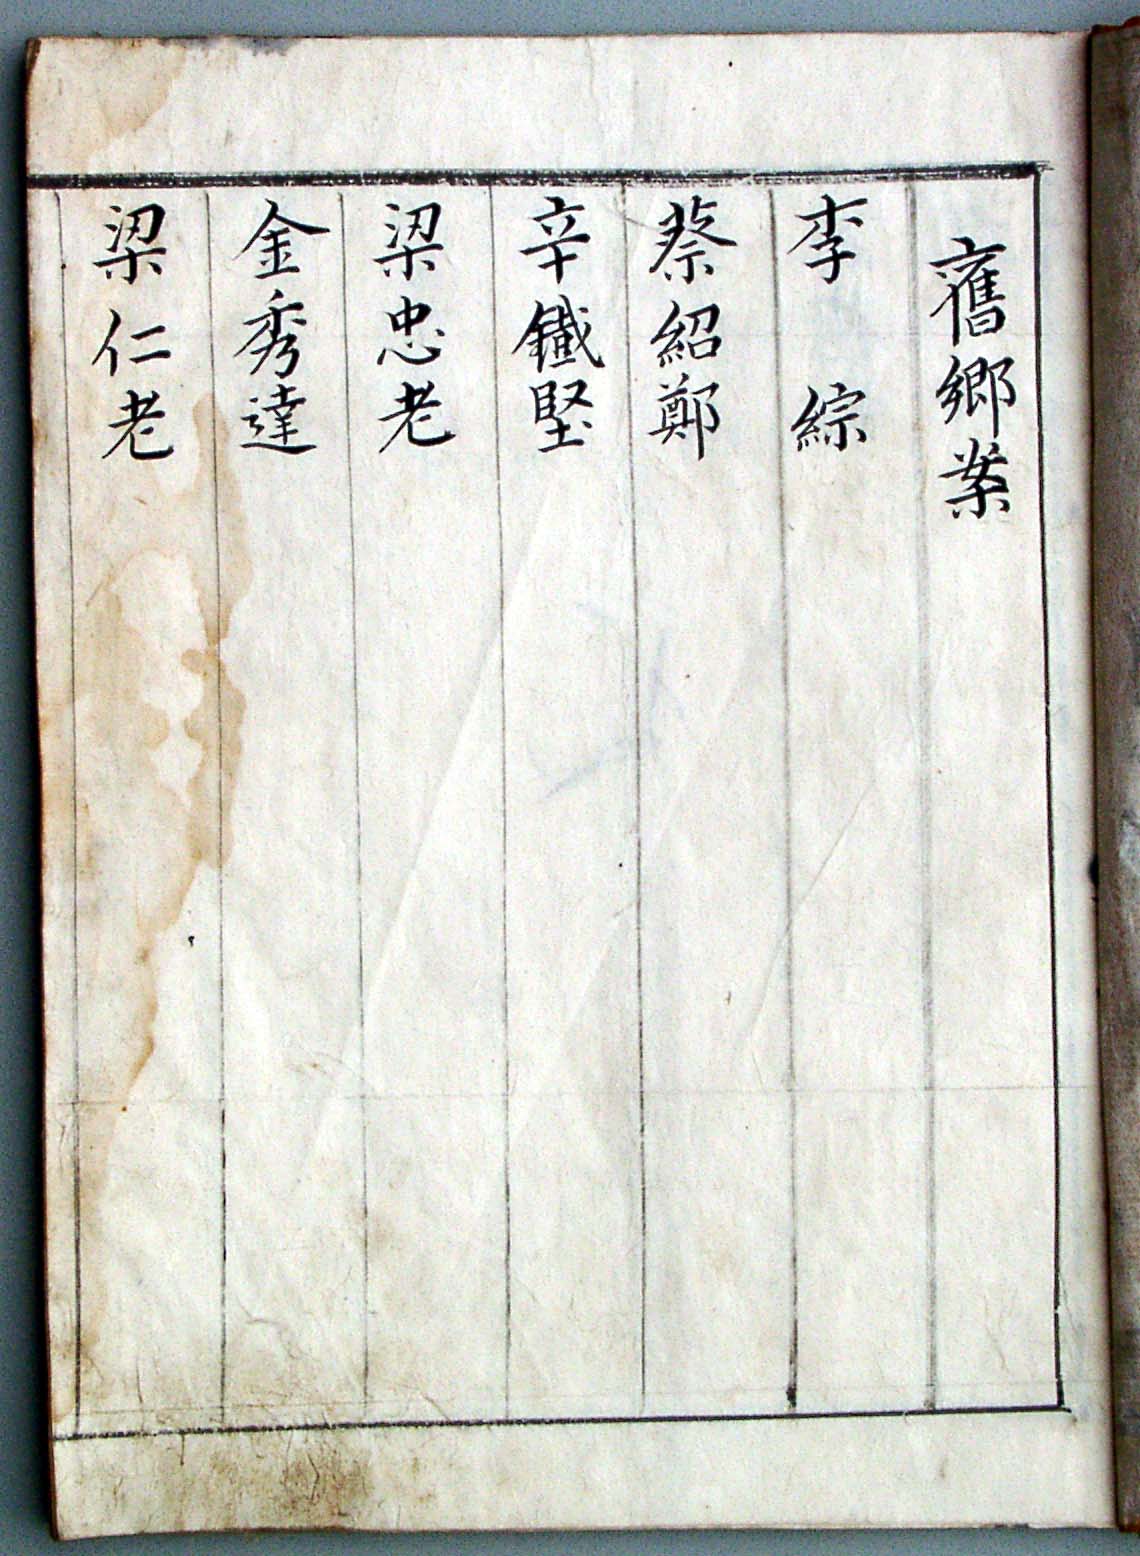 舊鄉案
李綜
蔡紹鄭
辛鐵堅
梁忠老
金秀達
梁仁老